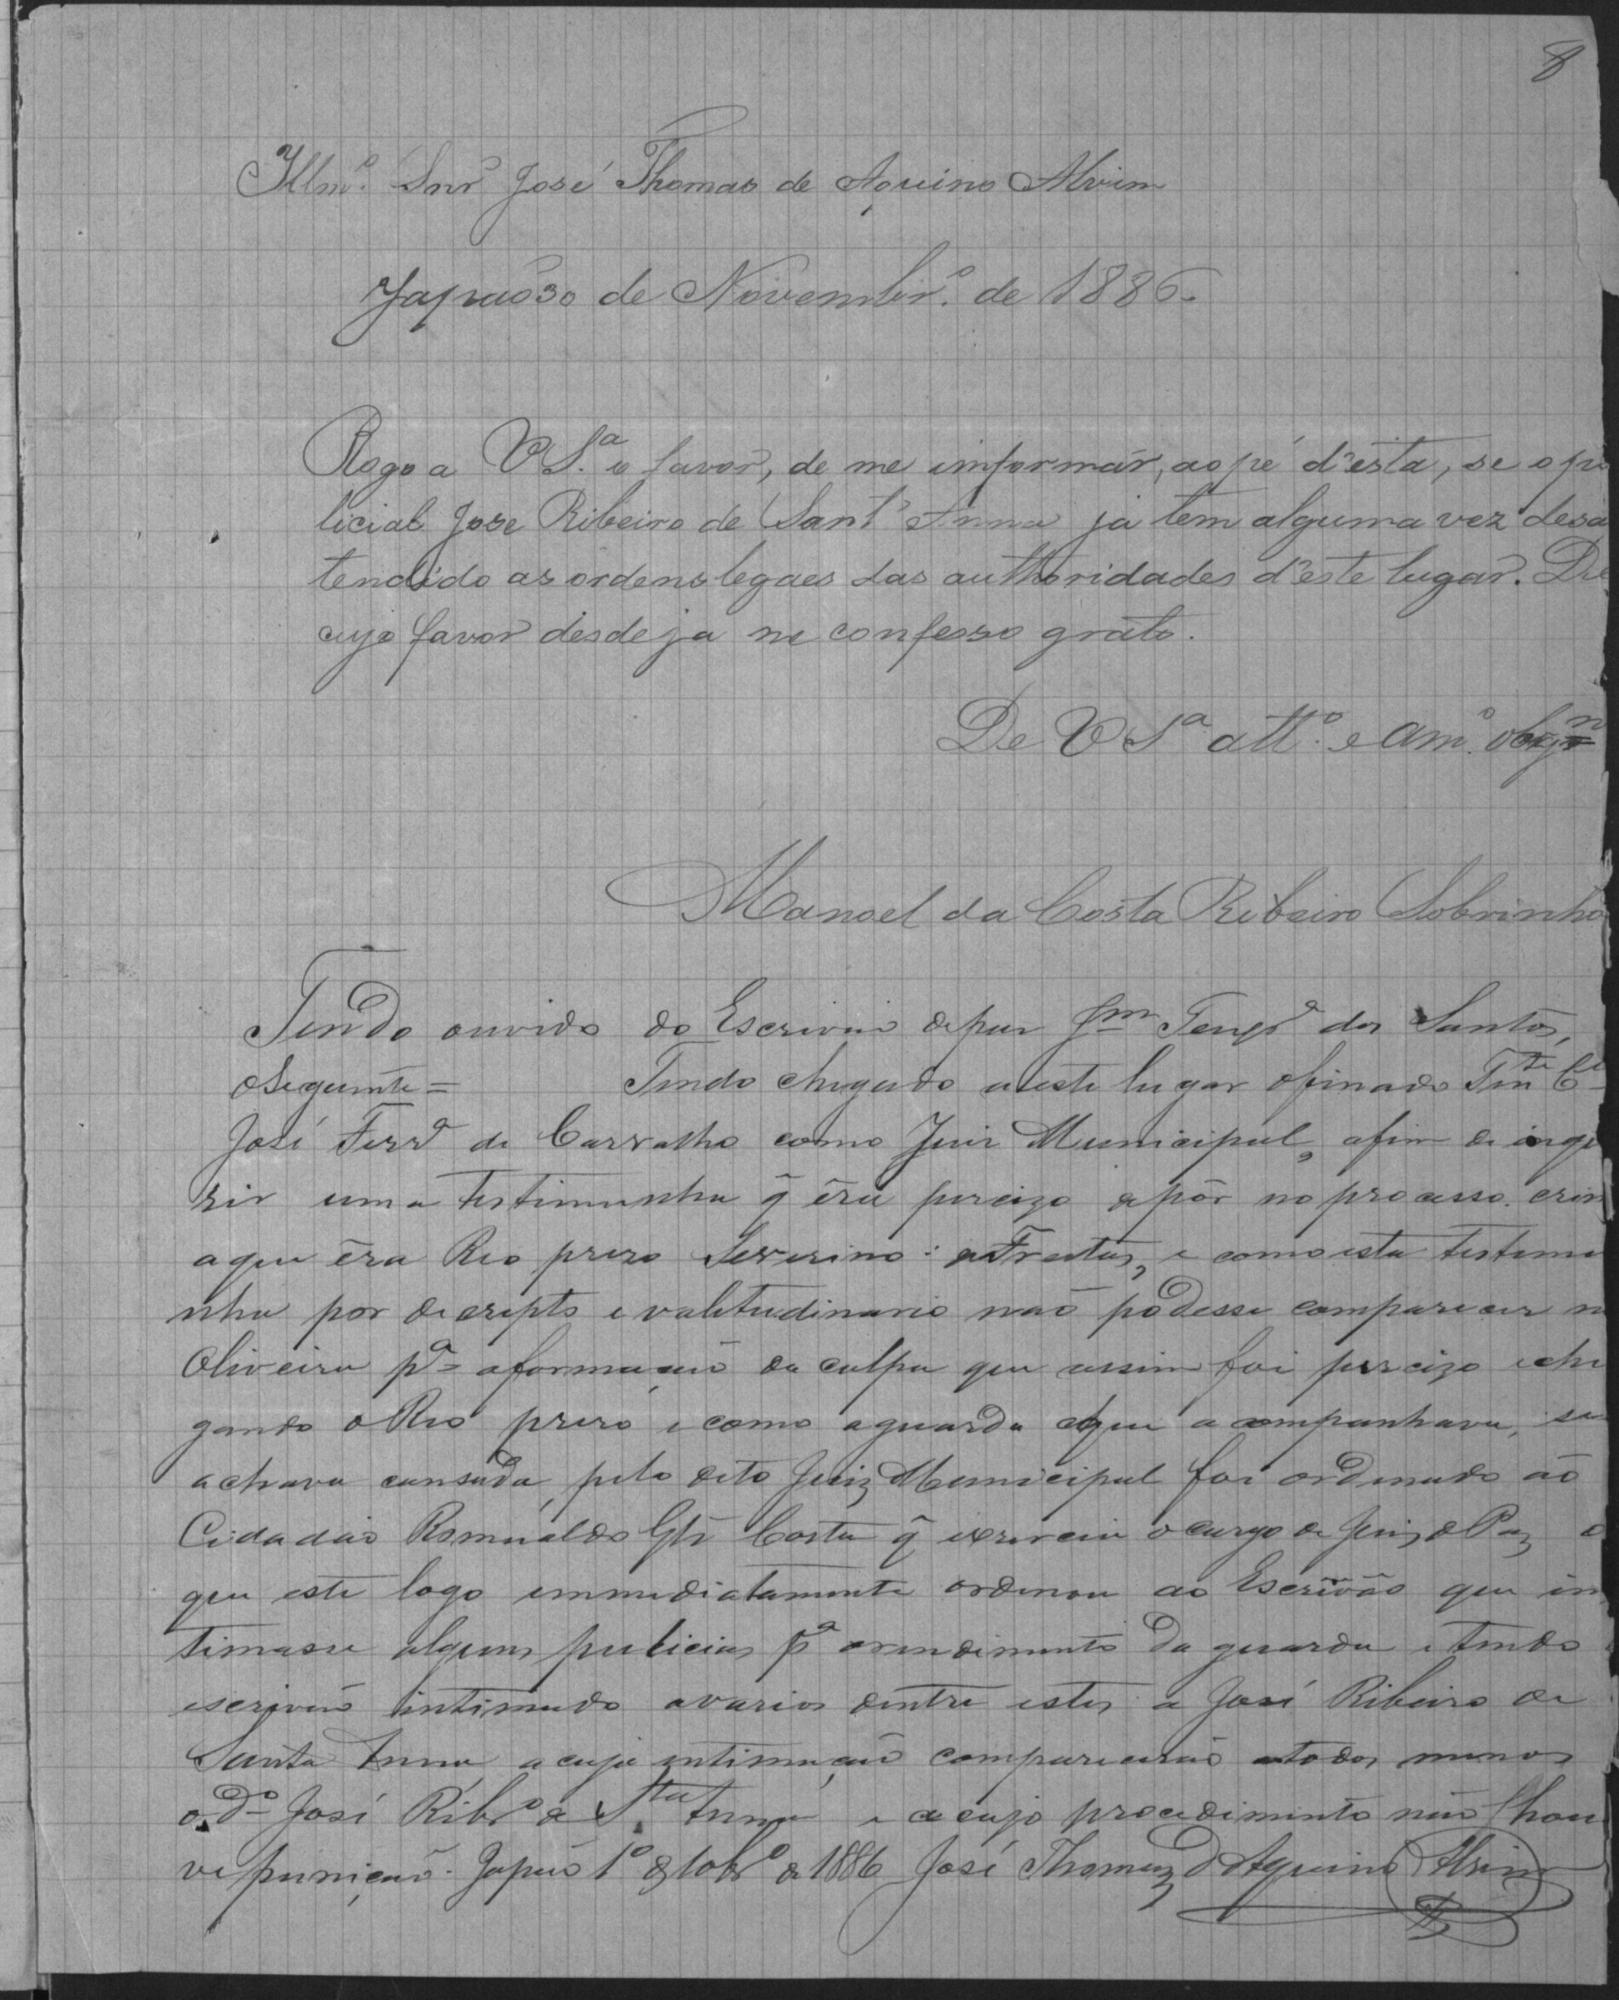 8
Illmº. Snrº José Thomas de Aquino Alvim
Japão 30 de Novembrº. de 1886.
Rogo a VS.ª o favor, de me imformar, ao pé d'esta, se o po
licial Jose Ribeiro de Sant'Anna ja tem alguma vez desa
tendido as ordens legaes das authoridades d'este lugar. De
cujo favor desde ja me confesso grato.
De VSª attº. e Amº. obrgº
Manoel da Costa Ribeiro Sobrinho
Tendo ouvido do Escrivão depaz dos Santos,
oseguinte = Tendo chegado aeste lugar ofinado Tnte Cel
José Ferrª de Carvalho como Juiz Municipal, afim de inque
rir uma testimunha q̃ éra percizo depôr no processo crim
aque éra Reo prezo Severino de Freitas, e como esta testemu
nha por decrepto e valetudinario naõ podesse comparecer n
Oliveira pª aformação da culpa que assim foi percizo eche
gando o Reo prezo e como aguarda que acompanhava, se
achava cansada, pelo dito Juiz Municipal foi ordenado aõ
Cidadaõ Romualdo Glz Costa q̃ exercia ocargo de Juiz de Paz e
que este logo immediatamente ordenou ao Escrivão que in
timasse alguns puliciaes pª orendimento da guarda e tendo
escrivaõ intimado avarios dentre estes a José Ribeiro de
Santa Anna, acuja intimação comparecerão todos menos
o dº José Ribrº de Sta Anna e acujo procedimento não hou
ve punição. Japão 1º de 10brº de 1886 José Thomaz d'Aquino Alvim